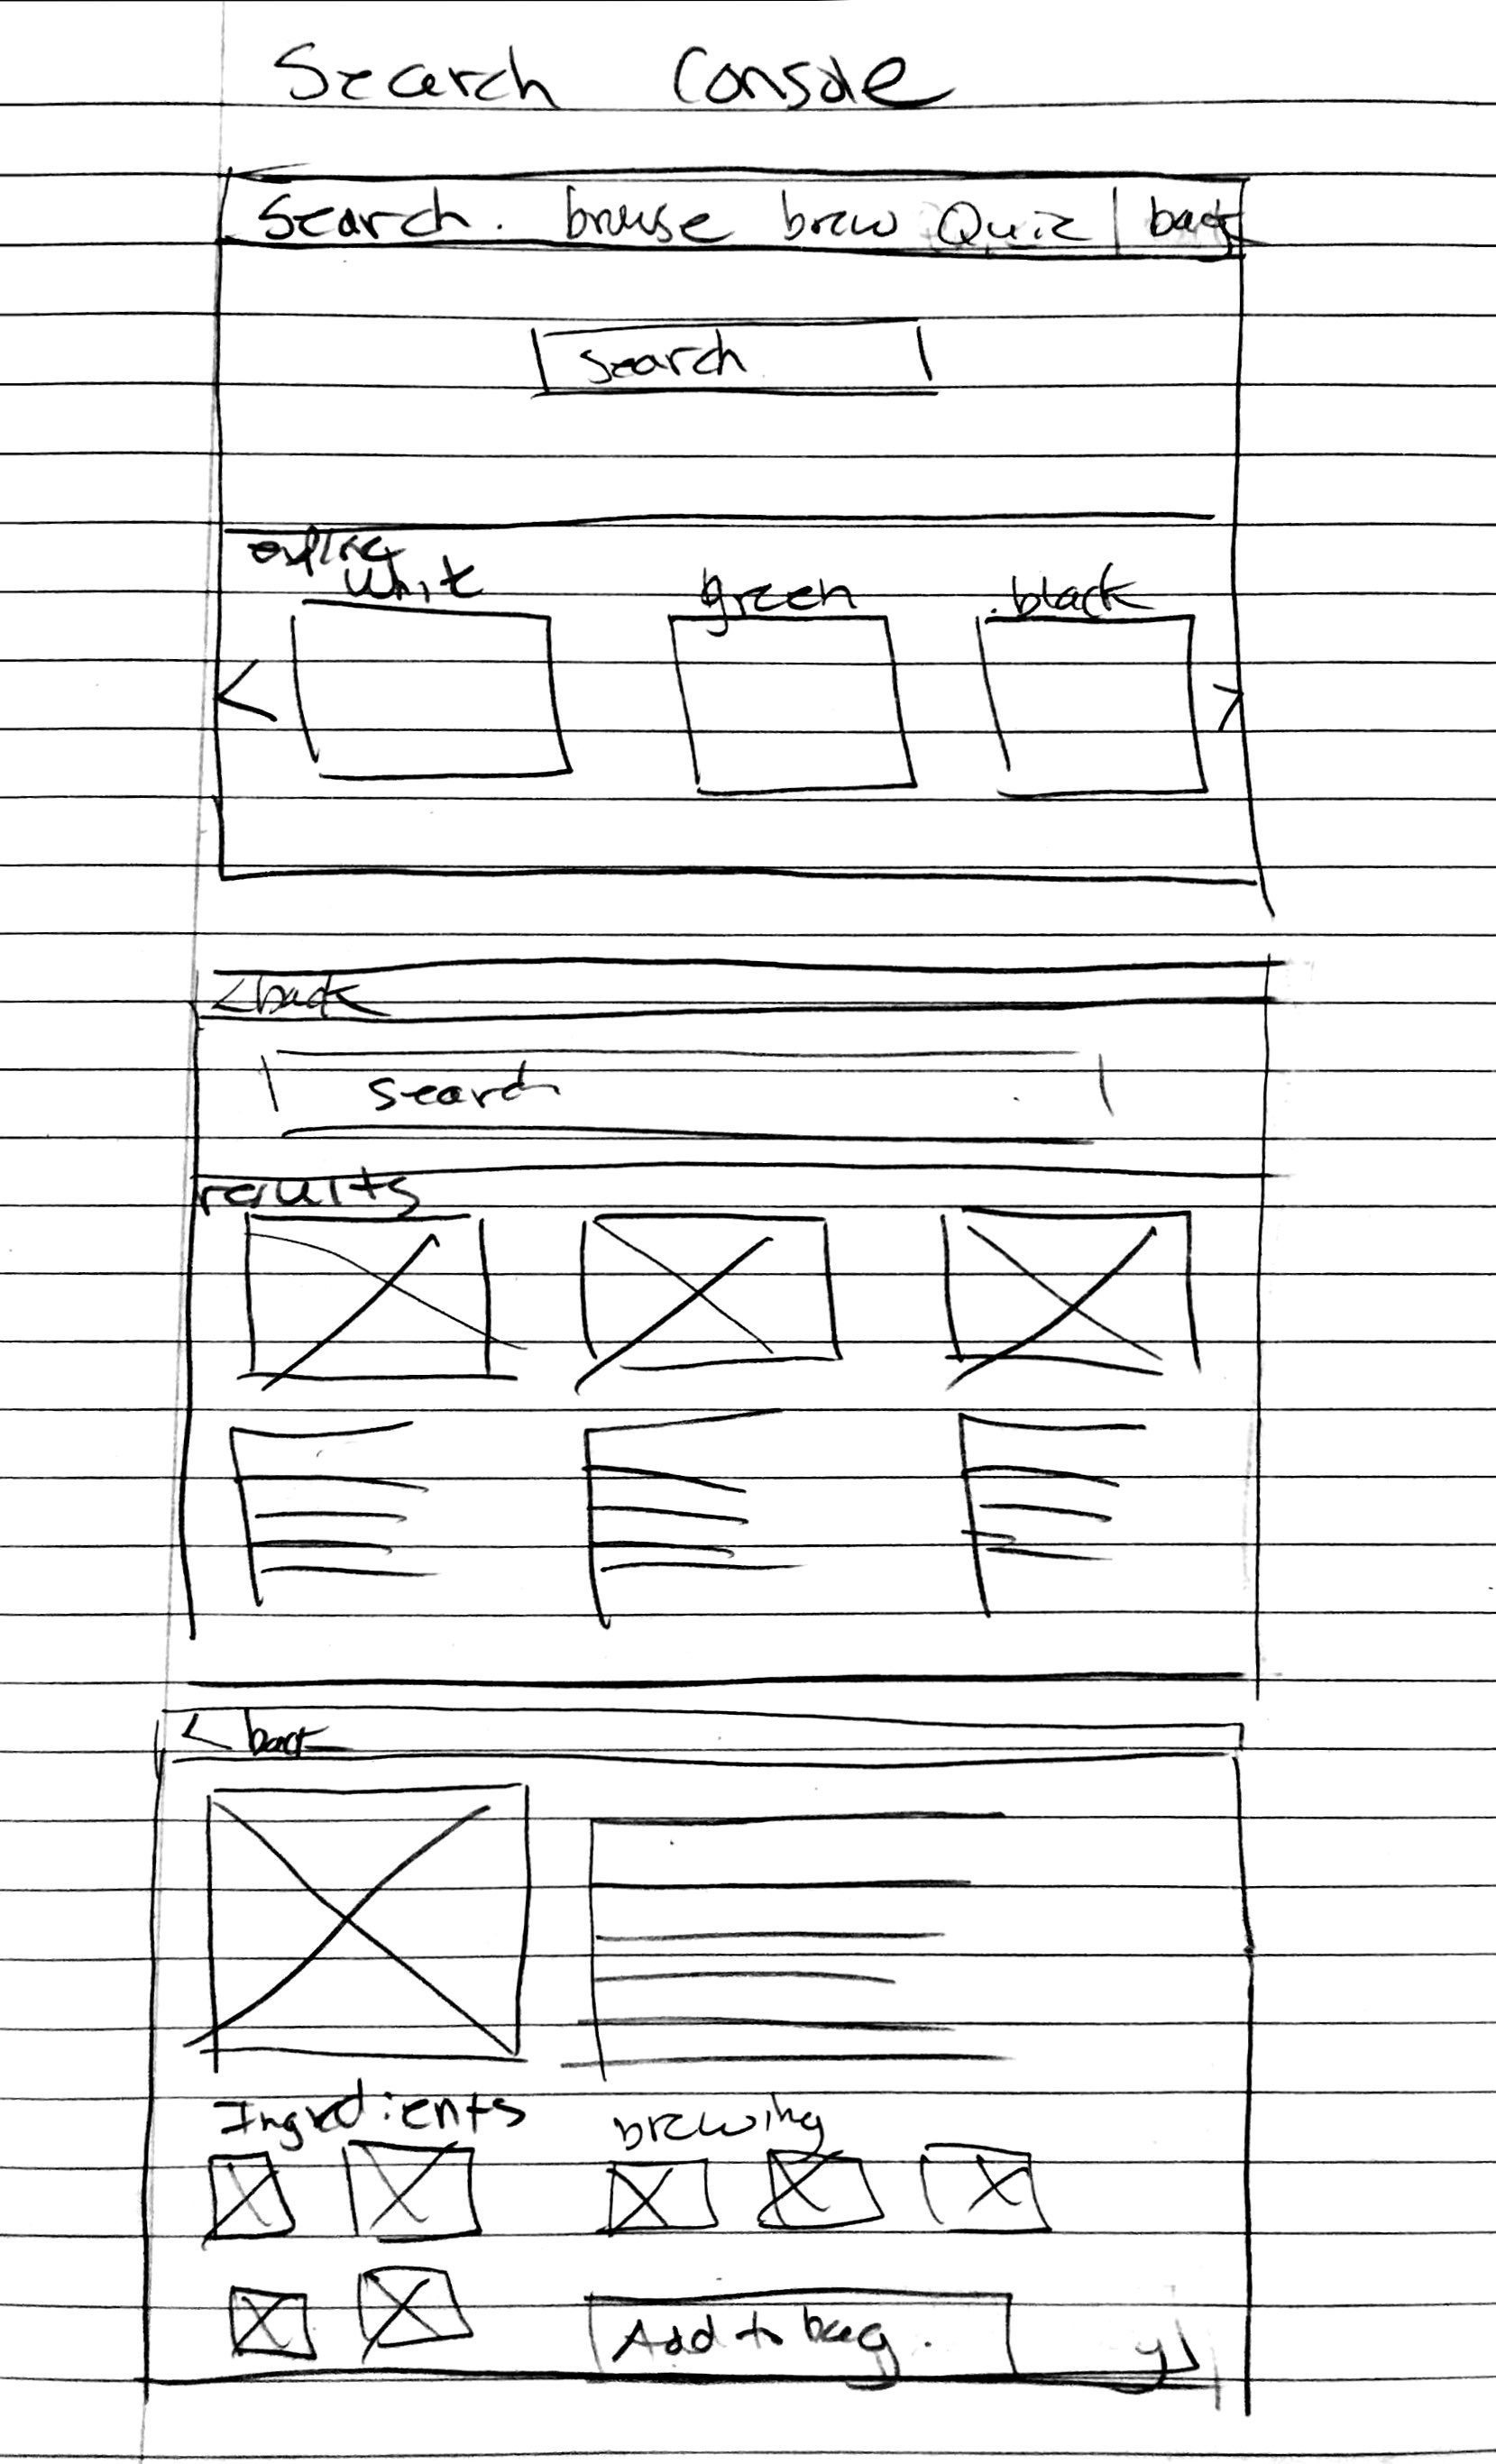 Search Console
Search. browse brew Quiz | bag
search
explore
White
green
black
< >
<back
search
results
< back
Ingredients
brewing
Add to bag.